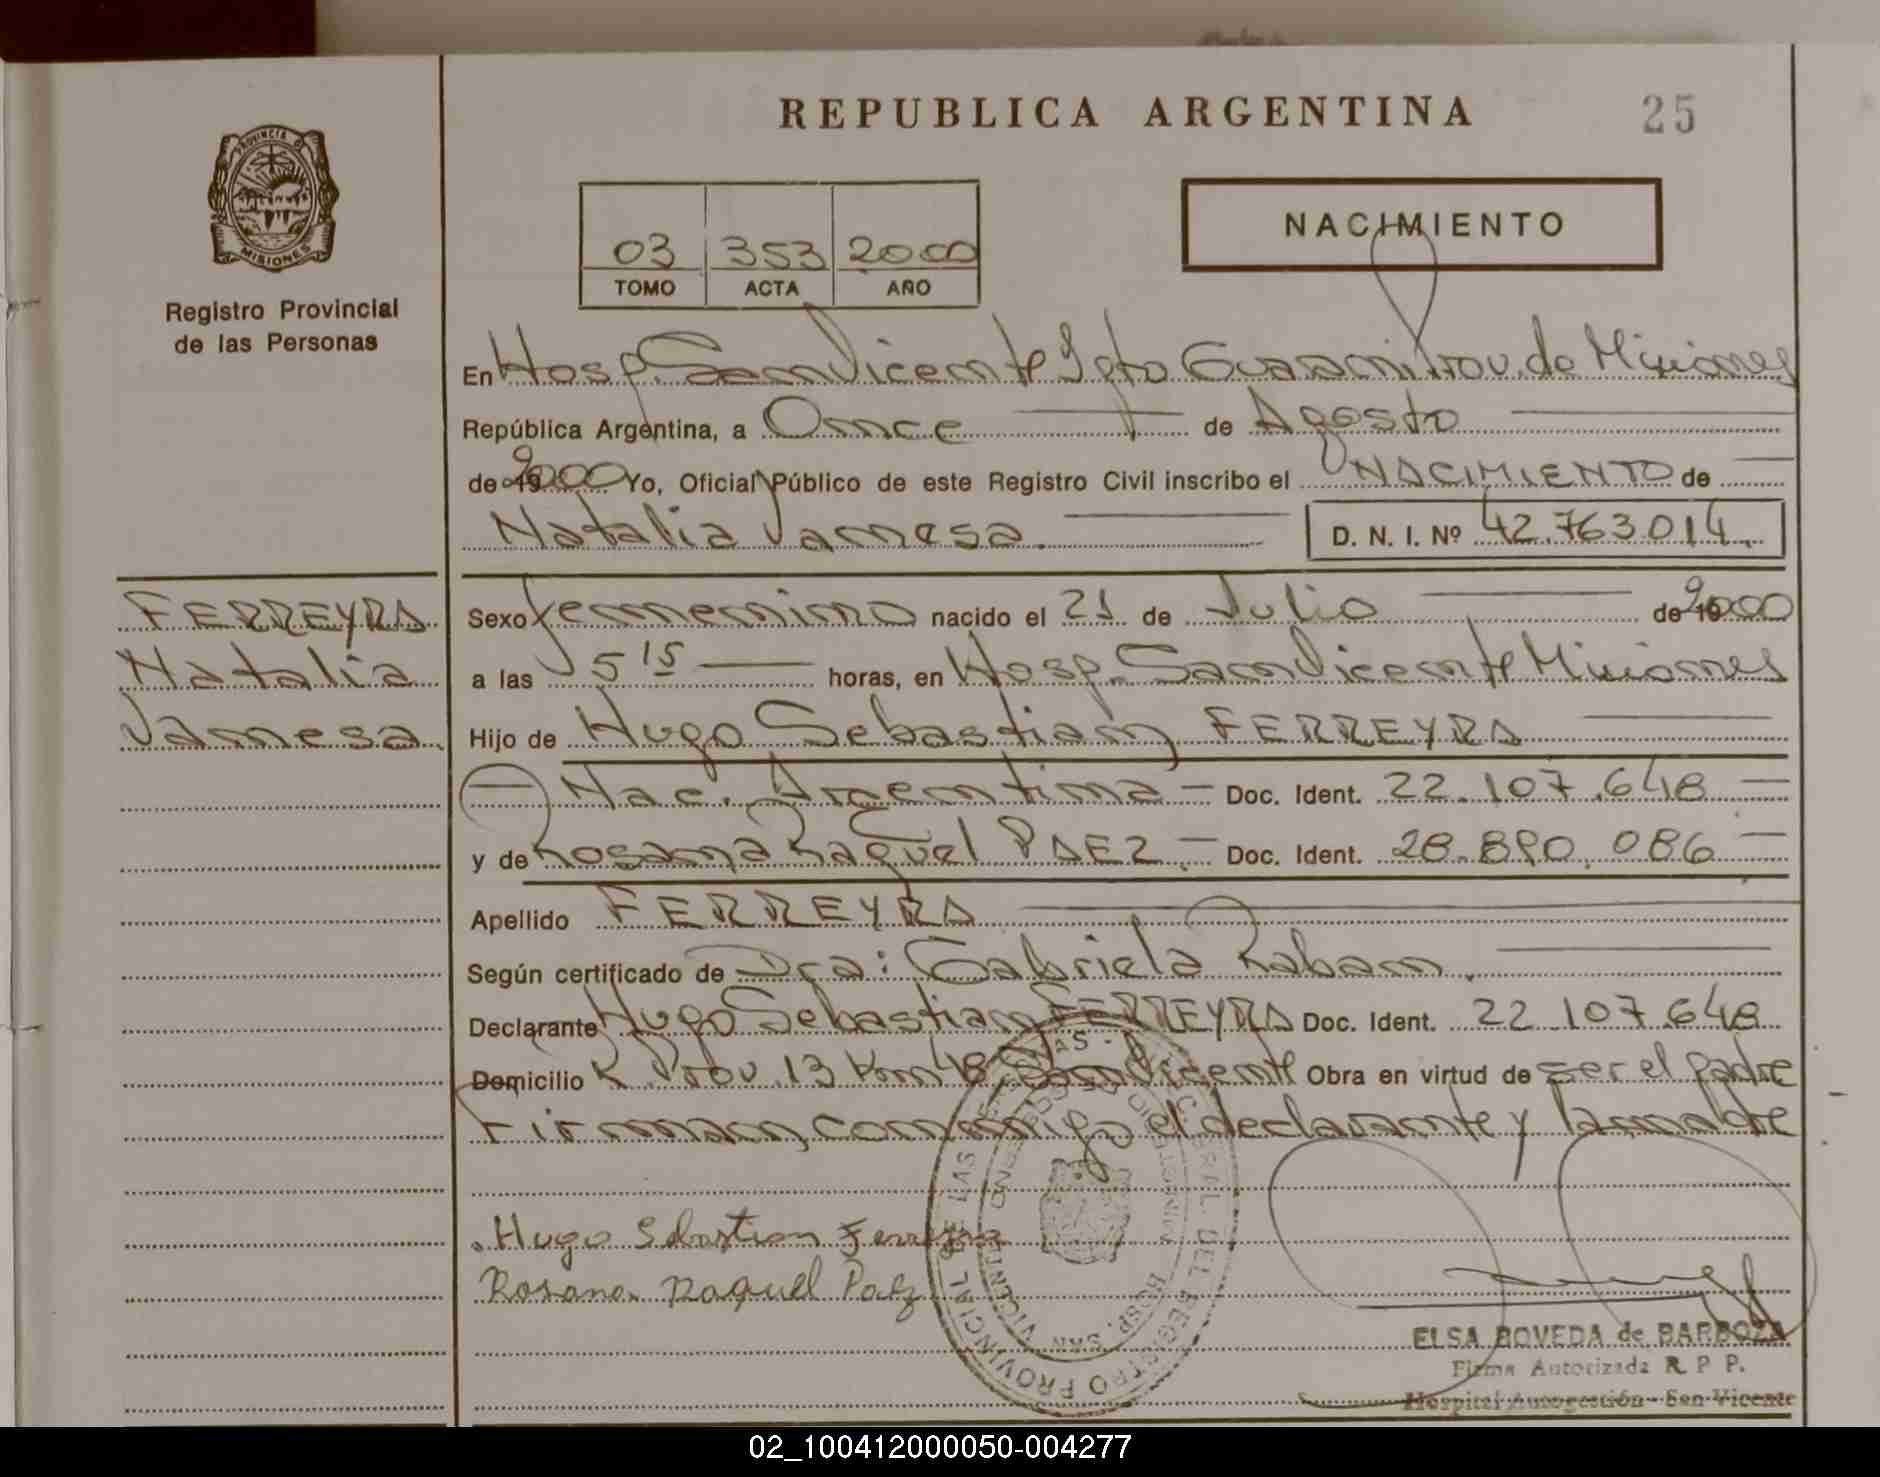 REPUBLICA ARGENTINA
25
PROVINCIA D
MISIONES
Registro Provincial
de las Personas
NACIMIENTO
03 353 2000
TOMO ACTA AÑO
En Hosp. San Vicente Dpto Guarani Prov. de Misiones
República Argentina, a Once de Agosto
de 19 2000 Yo, Oficial Público de este Registro Civil inscribo el NACIMIENTO de
Natalia Vanesa. D. N. I. Nº 42.763.014.
FERREYRA
Natalia
Vanesa.
Sexo femenino nacido el 21 de Julio de 19 2000
a las 5 15 horas, en Hosp. San Vicente Misiones
Hijo de Hugo Sebastian FERREYRA
Nac. Argentina Doc. Ident. 22.107.648
y de Rosana Raquel PAEZ. Doc. Ident. 28.890.086
Apellido FERREYRA
Según certificado de Dra: Gabriela Raban.
Declarante Hugo Sebastian FERREYRA Doc. Ident. 22.107.648
Domicilio R. Prov. 13 Km 48, San Vicente Obra en virtud de ser el padre
Firman, conmigo el declarante y la madre
Hugo Sebastian Ferreyra
Rosana Raquel Paez
HOSP. SAN VICENTE
ELSA BOVEDA de BARBOZA
Firma Autorizada R P P.
Hospital Autogestión - San Vicente
02_100412000050-004277